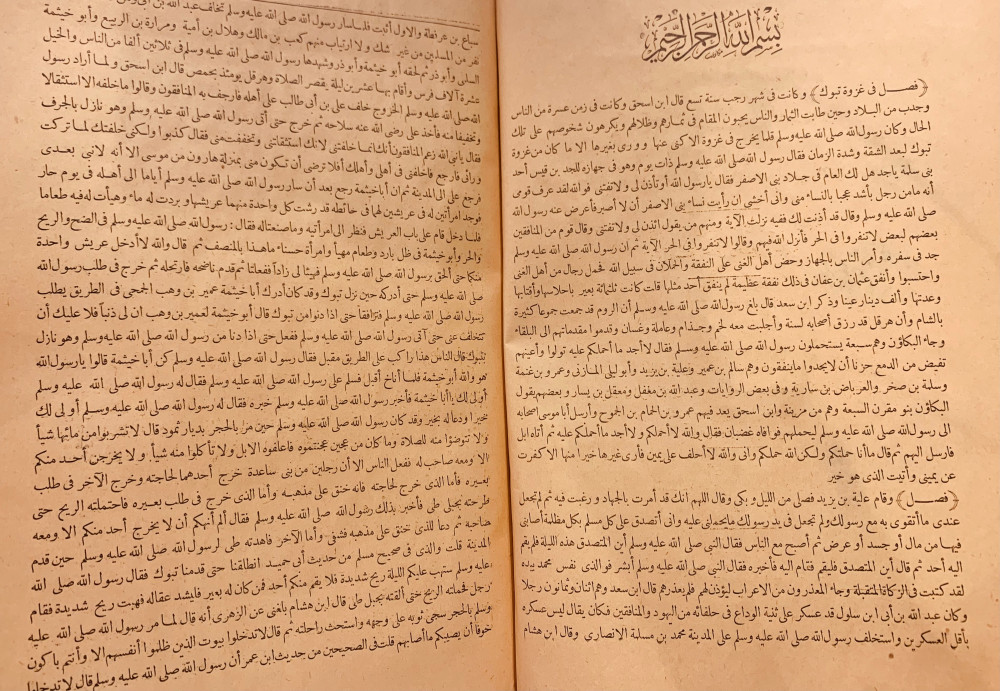 بسم الله الرحمن الرحيم
﴿فصل في غزوة تبوك﴾ وكانت في شهر رجب سنة تسع قال ابن اسحق وكانت في زمن عسرة من الناس
وجدب من البلاد وحين طابت الثمار والناس يحبون المقام في ثمارهم وظلالهم ويكرهون شخوصهم على تلك
الحال وكان رسول الله صلى الله عليه وسلم قلما يخرج في غزوة الا كنى عنها وورى بغيرها الا ما كان من غزوة
تبوك لبعد الشقة وشدة الزمان فقال رسول الله صلى الله عليه وسلم ذات يوم وهو في جهازه للجد بن قيس أحد
بني سلمة ياجد هل لك العام في جلاد بني الاصفر فقال يارسول الله أو تأذن لي ولا تفتني فوالله لقد عرف قومي
أنه مامن رجل بأشد عجبا بالنساء مني واني أخشى ان رأيت نساء بني الاصفر أن لا أصبر فأعرض عنه رسول الله
صلى الله عليه وسلم وقال قد أذنت لك ففيه نزلت الآية ومنهم من يقول ائذن لي ولا تفتني وقال قوم من المنافقين
بعضهم لبعض لاتنفروا في الحر فأنزل الله فيهم وقالوا لاتنفروا في الحر الآية ثم ان رسول الله صلى الله عليه وسلم
جد في سفره وأمر الناس بالجهاز وحض أهل الغنى على النفقة والحملان في سبيل الله فحمل رجال من أهل الغنى
واحتسبوا وأنفق عثمان بن عفان في ذلك نفقة عظيمة لم ينفق أحد مثلها قلت كانت ثلثمائة بعير باحلاسها وأقتابها
وعدتها وألف دينار عينا وذكر ابن سعد قال بلغ رسول الله صلى الله عليه وسلم أن الروم قد جمعت جموعا كثيرة
بالشام وأن هرقل قد رزق أصحابه لسنة وأجلبت معه لخم وجذام وعاملة وغسان وقدموا مقدماتهم الى البلقاء
وجاء البكاؤن وهم سبعة يستحملون رسول الله صلى الله عليه وسلم فقال لاأجد ما أحملكم عليه تولوا وأعينهم
تفيض من الدمع حزنا أن لايجدوا ماينفقون وهم سالم بن عمير وعلبة بن يزيد وأبو ليلى المازني وعمرو بن غنمة
وسلمة بن صخر والعرباض بن سارية وفي بعض الروايات وعبد الله بن مغفل ومعقل بن يسار وبعضهم يقول
البكاؤن بنو مقرن السبعة وهم من مزينة وابن اسحق يعد فيهم عمرو بن الحمام بن الجموح وأرسل أبا موسى أصحابه
الى رسول الله صلى الله عليه وسلم ليحملهم فوافاه غضبان فقال والله لاأحملكم ولا أجد ما أحملكم عليه ثم أتاه ابل
فارسل اليهم ثم قال ماأنا حملتكم ولكن الله حملكم واني والله لاأحلف على يمين فأرى غيرها خيرا منها الا كفرت
عن يميني وأتيت الذي هو خير
﴿فصل﴾ وقام علبة بن يزيد فصلى من الليل وبكى وقال اللهم انك قد أمرت بالجهاد ورغبت فيه ثم لم تجعل
عندى ماأتقوى به مع رسولك ولم تجعل في يد رسولك مايحملني عليه واني أتصدق على كل مسلم بكل مظلمة أصابني
فيها من مال أو جسد أو عرض ثم أصبح مع الناس فقال النبي صلى الله عليه وسلم أين المتصدق هذه الليلة فلم يقم
اليه أحد ثم قال أين المتصدق فليقم فقام اليه فأخبره فقال النبي صلى الله عليه وسلم أبشر فوالذي نفس محمد بيده
لقد كتبت في الزكاة المتقبلة وجاء المعذرون من الاعراب ليؤذن لهم فلم يعذرهم قال ابن سعد وهم اثنان وثمانون رجلا
وكان عبد الله بن أبي ابن سلول قد عسكر على ثنية الوداع في حلفائه من اليهود والمنافقين فكان يقال ليس عسكره
بأقل العسكرين واستخلف رسول الله صلى الله عليه وسلم على المدينة محمد بن مسلمة الانصاري وقال ابن هشام
سباع بن عرفطة والاول أثبت فلما سار رسول الله صلى الله عليه وسلم تخلف عبد الله بن أبي
نفر من المسلمين من غير شك ولا ارتياب منهم كعب بن مالك وهلال بن أمية ومرارة بن الربيع وأبو خيثمة
السلمي وأبو ذر ثم لحقه أبو خيثمة وأبو ذر وشهدها رسول الله صلى الله عليه وسلم في ثلاثين ألفا من الناس والخيل
عشرة آلاف فرس وأقام بها عشرين ليلة يقصر الصلاة وهرقل يومئذ بحمص قال ابن اسحق ولما أراد رسول
الله صلى الله عليه وسلم الخروج خلف علي بن أبي طالب على أهله فأرجف به المنافقون وقالوا ماخلفه الا استثقالا
وتخففا منه فأخذ علي رضي الله عنه سلاحه ثم خرج حتى أتى رسول الله صلى الله عليه وسلم وهو نازل بالجرف
فقال يانبي الله زعم المنافقون أنك انما خلفتني لانك استثقلتني وتخففت مني فقال كذبوا ولكني خلفتك لما تركت
ورائي فارجع فاخلفني في أهلي وأهلك أفلا ترضى أن تكون مني بمنزلة هارون من موسى الا أنه لانبي بعدى
فرجع علي الى المدينة ثم ان أبا خيثمة رجع بعد أن سار رسول الله صلى الله عليه وسلم أياما الى أهله في يوم حار
فوجد امرأتين له في عريشين لهما في حائطه قد رشت كل واحدة منهما عريشها وبردت له ماء وهيأت له فيه طعاما
فلما دخل قام على باب العريش فنظر الى امرأتيه وماصنعتا له فقال: رسول الله صلى الله عليه وسلم في الضح والريح
والحر وأبو خيثمة في ظل بارد وطعام مهيأ وامرأة حسناء ماهذا بالنصف ثم قال والله لاأدخل عريش واحدة
منكما حتى ألحق برسول الله صلى الله عليه وسلم فهيئا لي زادا ففعلتا ثم قدم ناضحه فارتحله ثم خرج في طلب رسول الله
صلى الله عليه وسلم حتى أدركه حين نزل تبوك وقد كان أدرك أبا خيثمة عمير بن وهب الجمحي في الطريق يطلب
رسول الله صلى الله عليه وسلم فترافقا حتى اذا دنوا من تبوك قال أبو خيثمة لعمير بن وهب ان لي ذنبا فلا عليك أن
تتخلف عني حتى آتي رسول الله صلى الله عليه وسلم ففعل حتى اذا دنا من رسول الله صلى الله عليه وسلم وهو نازل
بتبوك قال الناس هذا راكب على الطريق مقبل فقال رسول الله صلى الله عليه وسلم كن أبا خيثمة قالوا يارسول الله
هو والله أبو خيثمة فلما أناخ أقبل فسلم على رسول الله صلى الله عليه وسلم فقال له رسول الله صلى الله عليه وسلم
أولى لك ياأبا خيثمة فأخبر رسول الله صلى الله عليه وسلم خبره فقال له رسول الله صلى الله عليه وسلم أولى لك
خيرا ودعا له بخير وقد كان رسول الله صلى الله عليه وسلم حين مر بالحجر بديار ثمود قال لاتشربوا من مائها شيأ
ولا تتوضؤا منه للصلاة وما كان من عجين عجنتموه فاعلفوه الابل ولا تأكلوا منه شيأ ولا يخرجن أحد منكم
الا ومعه صاحب له ففعل الناس الا أن رجلين من بني ساعدة خرج أحدهما لحاجته وخرج الآخر في طلب
بعيره فأما الذي خرج لحاجته فانه خنق على مذهبه وأما الذي خرج في طلب بعيره فاحتملته الريح حتى
طرحته بجبلى طي فأخبر بذلك رسول الله صلى الله عليه وسلم فقال ألم أنهكم أن لا يخرج أحد منكم الا ومعه
صاحبه ثم دعا للذي خنق على مذهبه فشفي وأما الآخر فاهدته طي لرسول الله صلى الله عليه وسلم حين قدم
المدينة قلت والذي في صحيح مسلم من حديث أبي حميد انطلقنا حتى قدمنا تبوك فقال رسول الله صلى الله
عليه وسلم ستهب عليكم الليلة ريح شديدة فلا يقم منكم أحد فمن كان له بعير فليشد عقاله فهبت ريح شديدة فقام
رجل فحملته الريح حتى ألقته بجبلى طي قال ابن هشام بلغني عن الزهرى أنه قال لما مر رسول الله صلى الله عليه
وسلم بالحجر سجى ثوبه على وجهه واستحث راحلته ثم قال لاتدخلوا بيوت الذين ظلموا أنفسهم الا وأنتم باكون
خوفا أن يصيبكم ماأصابهم قلت في الصحيحين من حديث ابن عمر أن رسول الله صلى الله عليه وسلم قال لا تدخلوا